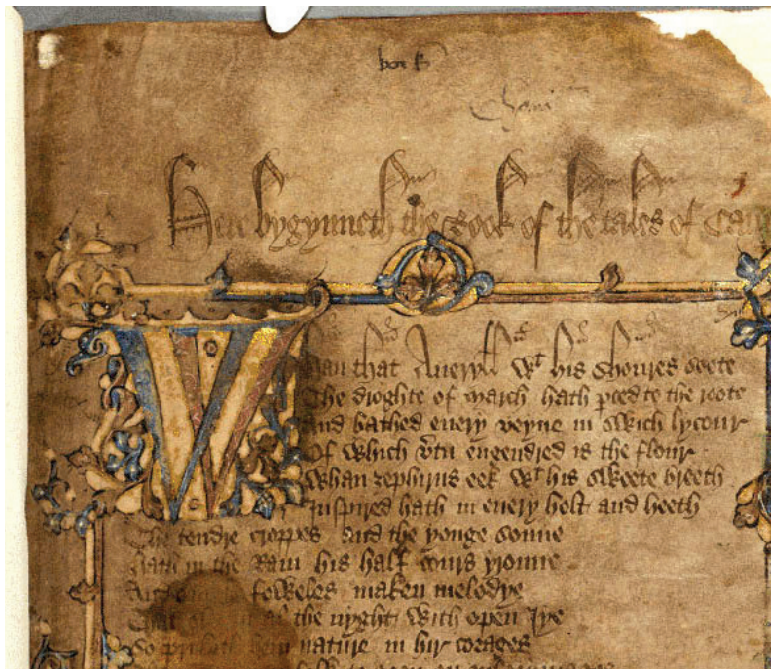 Here bygynneth the Book of the tales of Cau
Whan that Aueryll wt his shoures soote
The droghte of march hath pced to the roote
And bathed euery veyne in swich lycour
Of which vtu engendred is the flour
Whan zephirus eek wt his sweete breeth
Inspired hath in euery holt and heeth
The tendre croppes and the yonge sonne
Hath in the Ram his half cours yronne
And foweles maken melodye
That al the nyght with open Iye
So priketh hem nature in hir corages